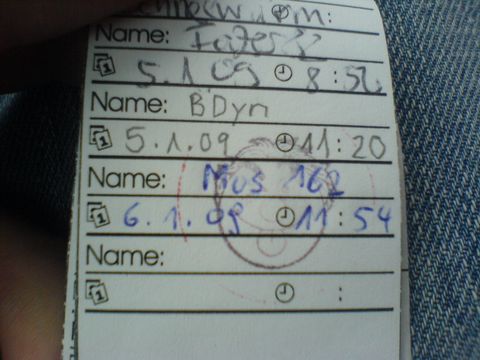 Name:
5.1.09 8:52
Name: BDyn
5.1.09 11:20
Name: Mus 162
6.1.09 11:54
Name:
: